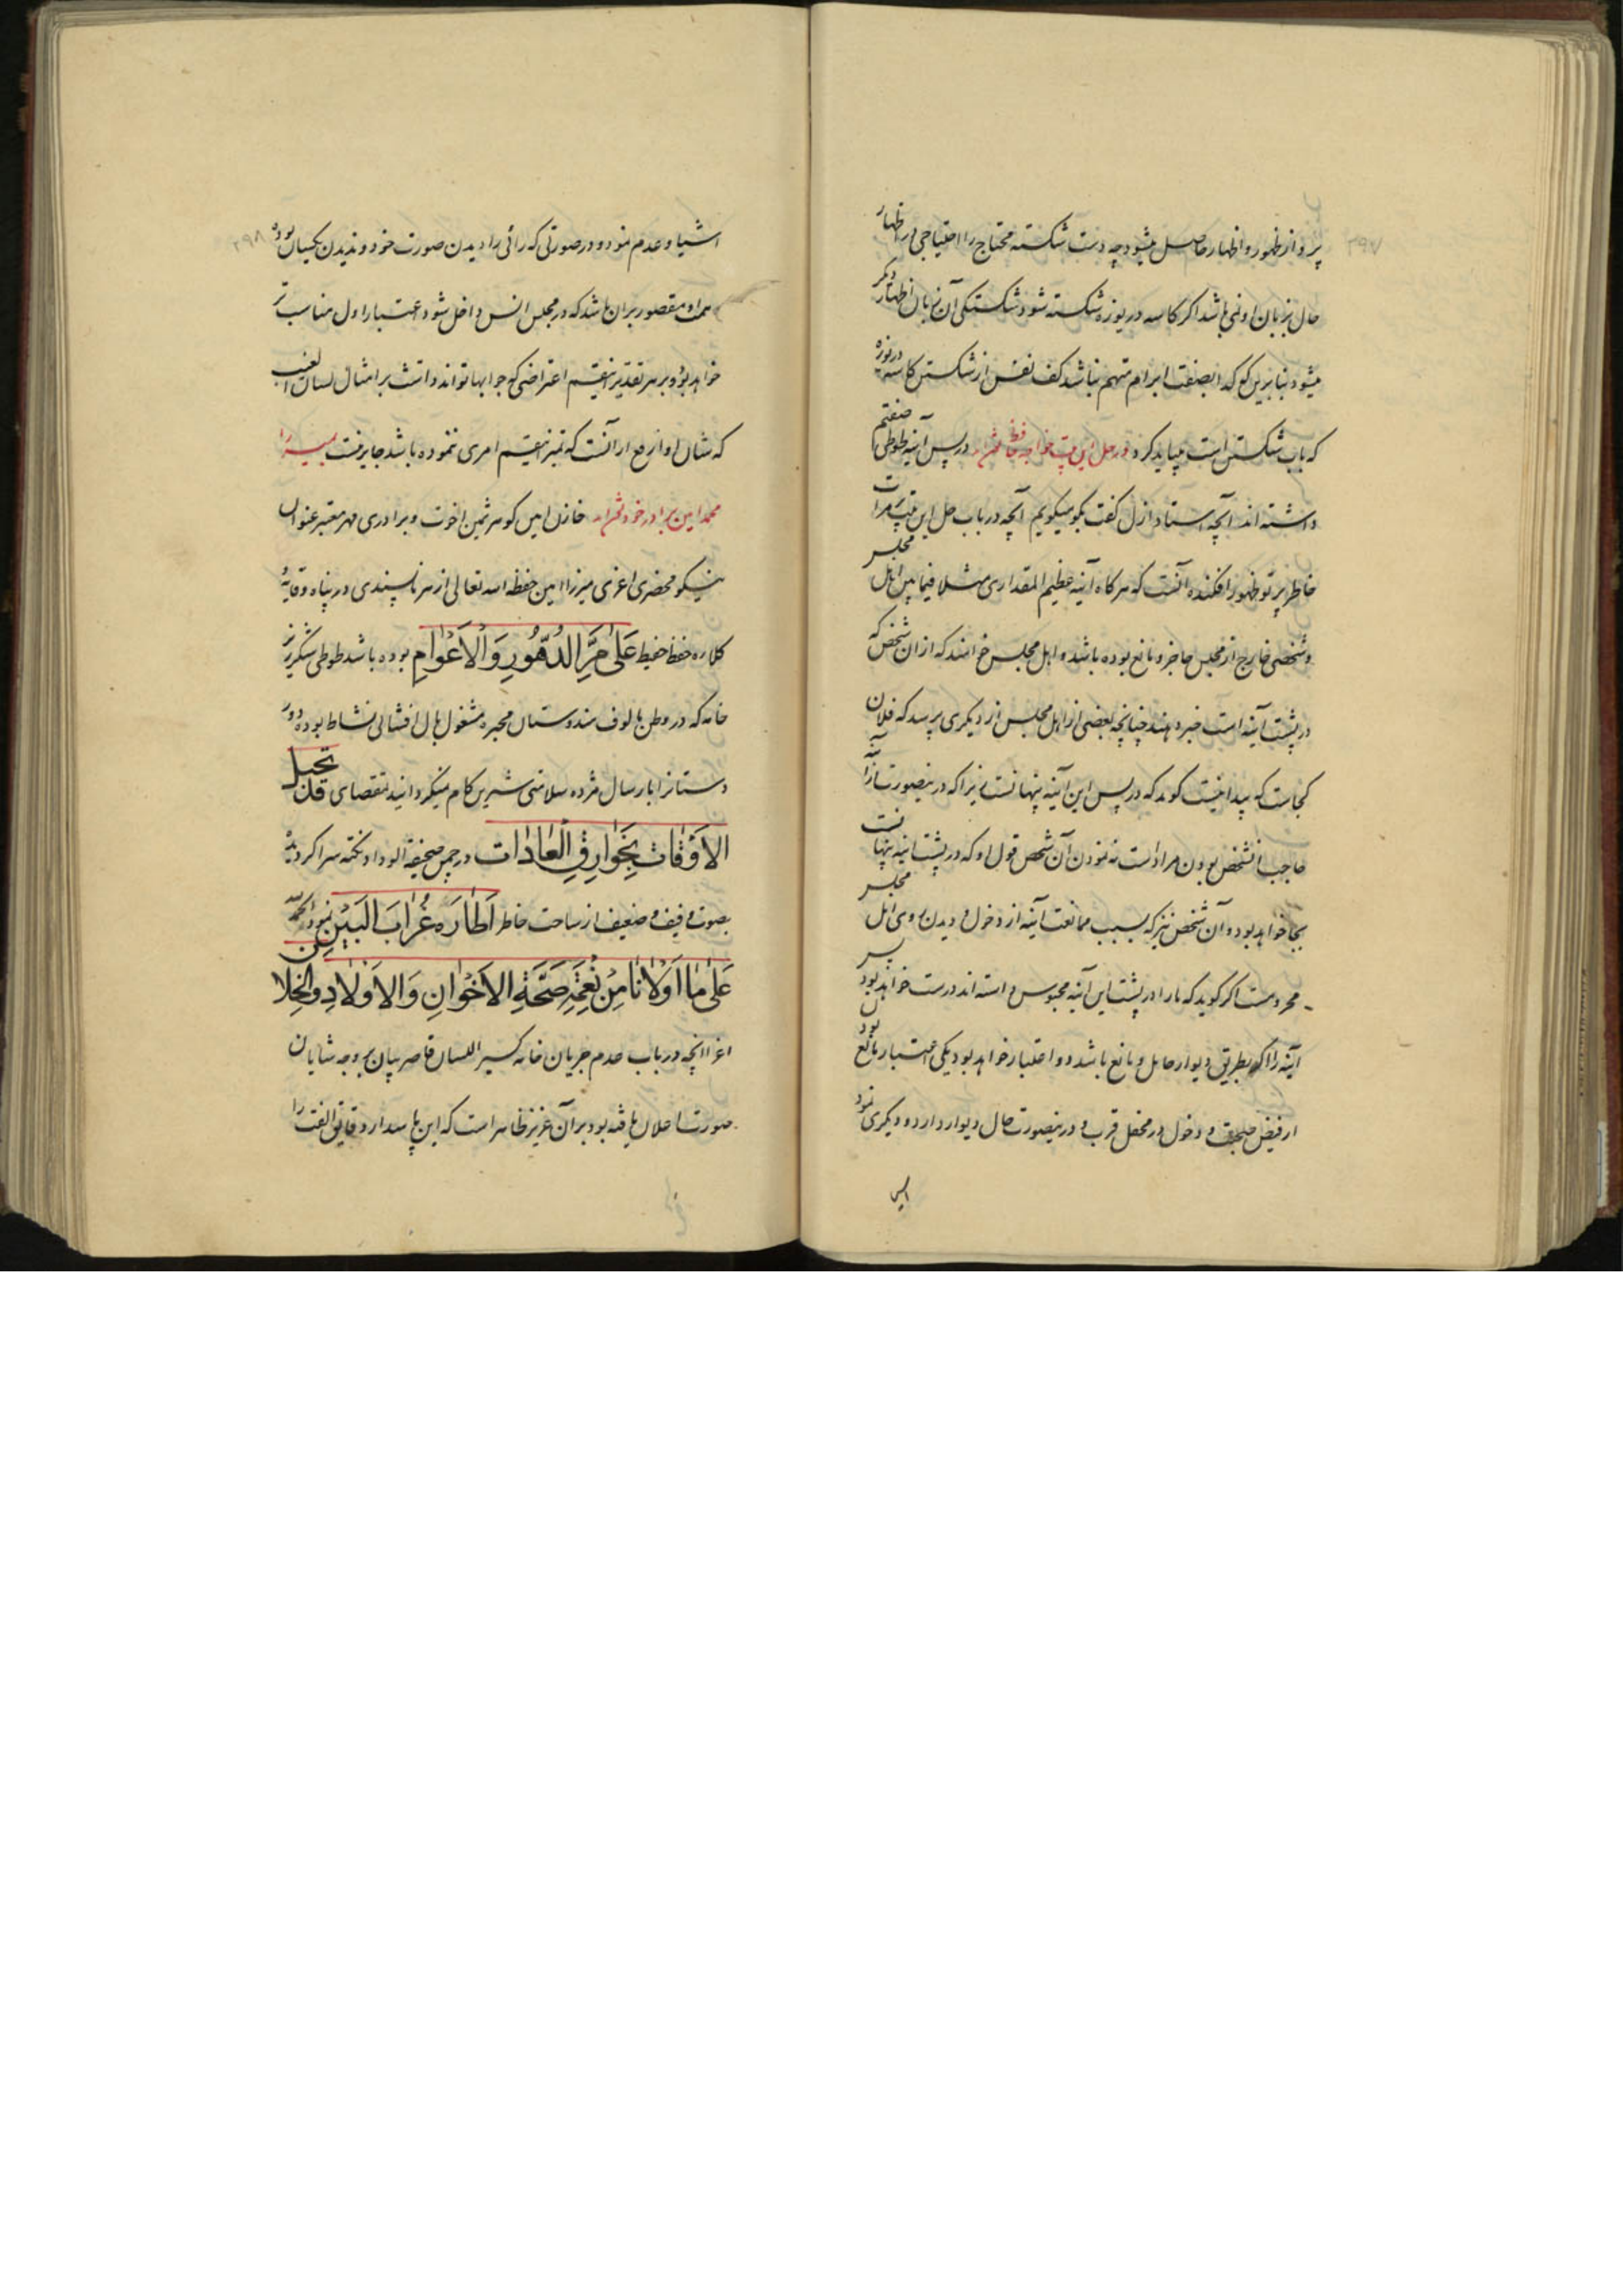 پرواز ظهور و اظهار حاصل میشود چه دست شکسته محتاج را احتیاجی در اظهار
حال بزبان او نمی باشد اکر کاسه دریوزه شکسته شود شکستکی آن زبان اظهار دیکر
میشود بنابرین کف که بصنعت ابرام متهم نباشد کف نفس از شکستن کاسه دریوزه
که باب شکستن است میباید کرد در حل این بیت خواجه حافظ در پس آینه طوطی صفتم
داشته اند آنچه استاد ازل کفت بکو میکویم آنچه در باب حل این بیت مرا
خاطر پرتو ظهور افکنده آنست که هرکاه آینه عظیم المقداری مثلا فیمابین اهل مجلس
و شخصی خارج از مجلس حاجز و مانع بوده باشد و اهل مجلس خواهند که از ان شخص که
در پشت آینه است خبر دهند چنانچه بعضی از اهل مجلس از دیکری پرسد که فلان
کجاست که پیدا نیست کوید که در پس این آینه پنهانست زیرا که درینصورت آینه را
حاجب انشخص بودن مراد است نه نمودن آن شخص قول او که در پشت اینه پنهانست
بجا خواهد بود و آن شخص نیز که بسبب ممانعت آینه از دخول و دیدن روی اهل مجلس
محرومست اکر کوید که مارا در پشت این آینه محبوس داشته اند درست خواهد بود پس
آینه را اکر بطریق دیوار حایل و مانع باشد دو اعتبار خواهد بود یکی اعتبار مانع بودن
از فیض صحبت و دخول در محفل قرب و درینصورت حال دیوار دارد و دیکری نمود
اشیا و عدم نمود و در صورتی که رائی را دیدن صورت خود و ندیدن یکسان بوده
همت او مقصور بران باشد که در مجلس انس داخل شود اعتبار اول مناسب تر
خواهد بود و بر هر تقدیر اعتراضی که جوابها تواند داشت بر امثال لسان الغیب
که شان او ارفع از آنست که تمیز امری ننموده باشد جایز نیست بمیرزا
محمد امین برادر خود خازن امین کوهر ثمین اخوت و برادری مهر معتبر عنوان
نیکو محضری اعزی میرزا امین حفظه الله تعالی از هر ناپسندی در پناه وقایه
کلاءه حفظ حفیظ عَلیٰ مَرِّ الدُّهُورِ وَالْاَعْوٰامِ بوده باشد طوطی شکرریز
خامه که در وطن مالوف هندوستان محبره مشغول بال افشانی نشاط بوده دور
دستانرا بارسال مژده سلامتی شیرین کام میکردانید بمقتضای قَلَّ تَحیل
الاَوْقاتِ بِخَوارِقِ الْعٰادٰات در چمن صحیفة الوداد نکته سرا کردیده
بصوت خفیف و ضعیف از ساحت خاطر اَطٰارَه غُرٰابَ الْبَیْنِ نمود الحمدلله
عَلیٰ مٰا اَوْلاٰنٰا مِنْ نِعْمَةِ صِحَّةِ الاَخْوٰانِ وَالاَوْلاٰدِ وَالخِلاّن
اعزا انچه در باب عدم جریان خامه کسیر اللسان قاصر بیان بر وجه شایان
صورت اعلان یافته بود بر آن عزیز ظاهر است که این پاسدار دقایق الفت را